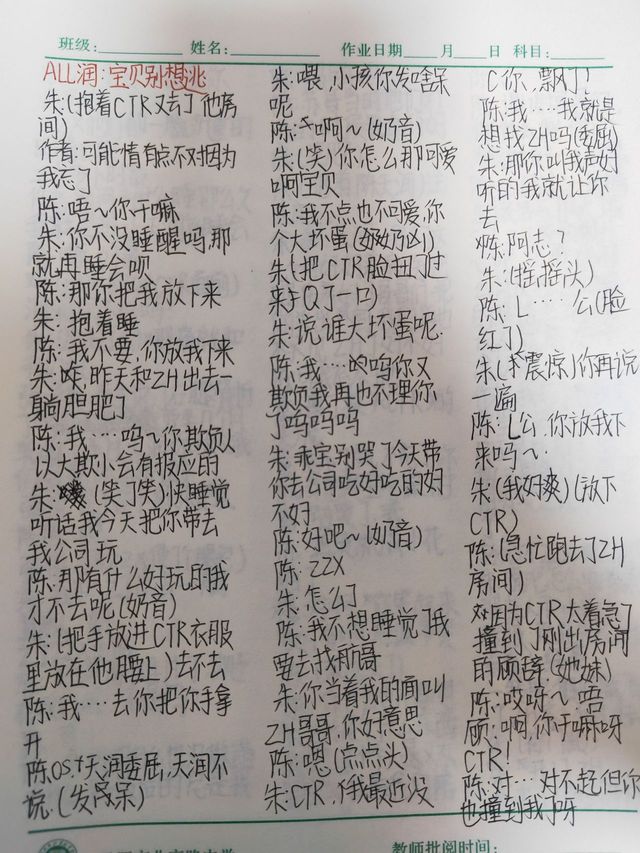 班级: 姓名: 作业日期 月 日 科目:
ALL润:宝贝别想逃
朱:(抱着CTR又去了他房
间)
作者:可能情有点不对因为
我忘了
陈:唔~你干嘛
朱:你不没睡醒吗,那
就再睡会呗
陈:那你把我放下来
朱:抱着睡
陈:我不要,你放我下来
朱:咦,昨天和ZH出去一
躺胆肥了
陈:我····呜~你欺负人
以大欺小会有报应的
朱:(笑了笑)快睡觉
听话我今天把你带去
我公司玩
陈:那有什么好玩的我
才不去呢(奶音)
朱:(把手放进CTR衣服
里放在他腰上)去不去
陈:我····去你把你手拿
开
陈,OS:天润委屈,天润不
说.(发呆)
朱:喂,小孩你发啥呆
呢
陈:啊~(奶音)
朱(笑)你怎么那可爱
啊宝贝
陈:我不点也不可爱,你
个大坏蛋(奶奶凶)
朱(把CTR脸扭了过
来于Q了一口)
朱:说谁大坏蛋呢.
陈:我····呜你又
欺负我再也不理你
了呜呜呜
朱:乖宝别哭了今天带
你去公司吃好吃的好
不好
陈:好吧~(奶音)
陈:ZZX
朱:怎么了
陈:我不想睡觉了我
要去找航哥
朱:你当着我的商叫
ZH哥哥,你好意思
陈:嗯(点点头)
朱:CTR,我最近没
C你,飘了!
陈:我····我就是
想找ZH吗(委屈)
朱:那你叫我声好
听的我就让你
去
陈:阿志?
朱:(摇摇头)
陈:L····公(脸
红了)
朱(震惊)你再说
一遍
陈:L公,你放我下
来吗~.
朱(我好爽)(放下
CTR)
陈:(急忙跑去了ZH
房间)
因为CTR太着急了
撞到了刚出房间
的顾辞(她妹)
陈:哎呀~唔
顾:啊,你干嘛呀
CTR!
陈:对····对不起但你
也撞到我了呀
教师批阅时间: